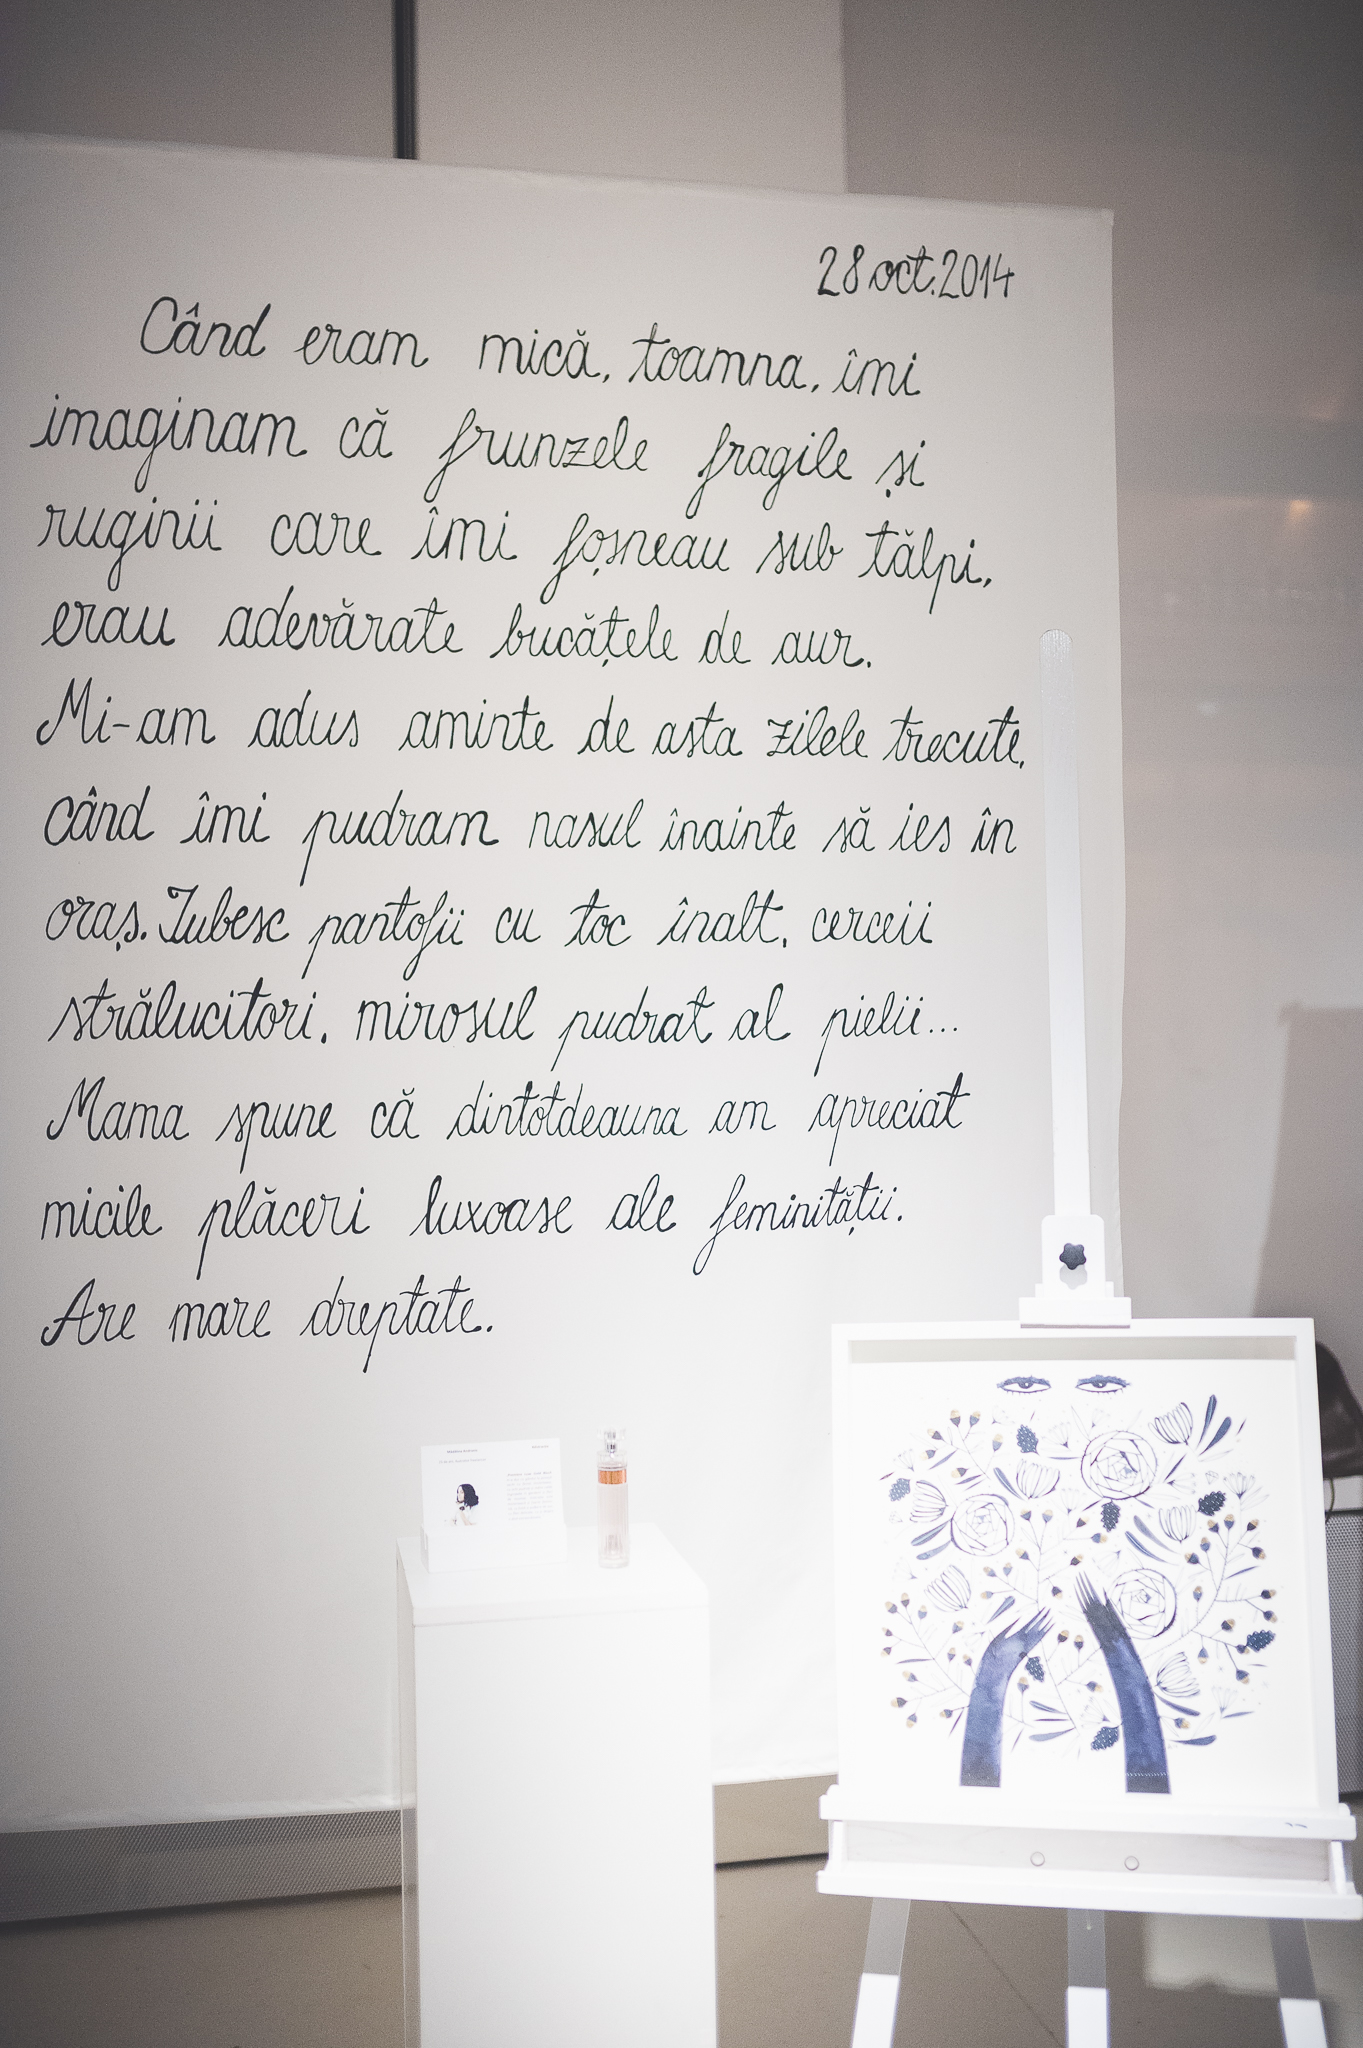 28 oct. 2014
Când eram mică, toamna, îmi
imaginam că frunzele fragile și
ruginii care îmi foșneau sub tălpi,
erau adevărate bucățele de aur.
Mi-am adus aminte de asta zilele trecute,
când îmi pudram nasul înainte să ies în
oraș. Iubesc pantofii cu toc înalt, cerceii
strălucitori, mirosul pudrat al pielii...
Mama spune că dintotdeauna am apreciat
micile plăceri luxoase ale feminității.
Are mare dreptate.